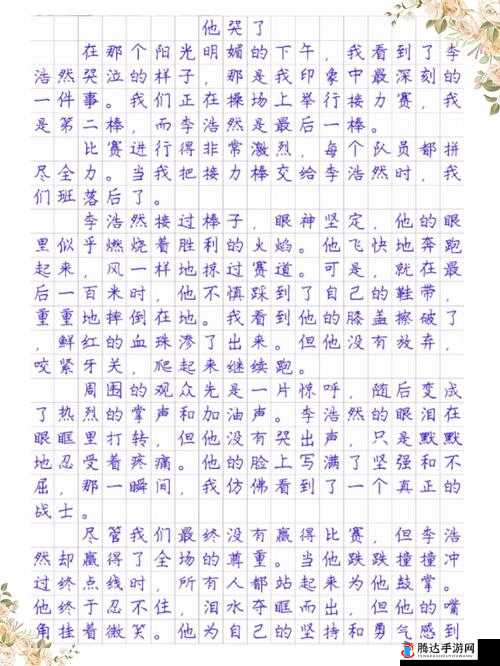 他哭了
在那个阳光明媚的下午，我看到了李
浩然哭泣的样子，那是我印象中最深刻的
一件事。我们正在操场上举行接力赛，我
是第二棒，而李浩然是最后一棒。
比赛进行得非常激烈，每个队员都拼
尽全力。当我把接力棒交给李浩然时，我
们班落后了。
李浩然接过棒子，眼神坚定，他的眼
里似乎燃烧着胜利的火焰。他飞快地奔跑
起来，风一样地掠过赛道。可是，就在最
后一百米时，他不慎踩到了自己的鞋带，
重重地摔倒在地。我看到他的膝盖擦破了
，鲜红的血珠渗了出来。但他没有放弃，
咬紧牙关，爬起来继续跑。
周围的观众先是一片惊呼，随后变成
了热烈的掌声和加油声。李浩然的眼泪在
眼眶里打转，但他没有哭出声，只是默默
地忍受着疼痛。他的脸上写满了坚强和不
屈，那一瞬间，我仿佛看到了一个真正的
战士。
尽管我们最终没有赢得比赛，但李浩
然却赢得了全场的尊重。当他跌跌撞撞冲
过终点线时，所有人都站起来为他鼓掌。
他终于忍不住，泪水夺眶而出，但他的嘴
角挂着微笑。他为自己的坚持和勇气感到
腾达手游网